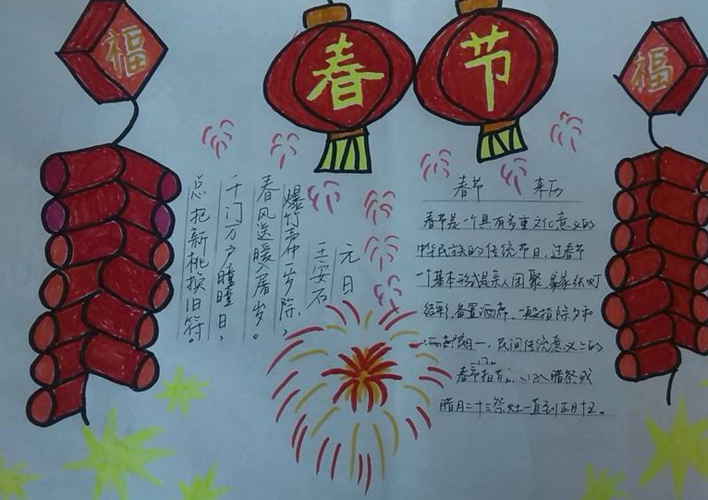 福
春节
福
元日
王安石
爆竹声中一岁除，
春风送暖入屠岁。
千门万户曈曈日，
总把新桃换旧符。
春节 来历
春节是一个具有多重文化意义的
中华民族的传统节日，过春节
一个基本形式是亲人团聚，家家张灯
结彩，备置酒席，一般指除夕和
初一，民间传统意义上的
春节指 腊祭或
腊月二十三祭灶一直到正月十五。